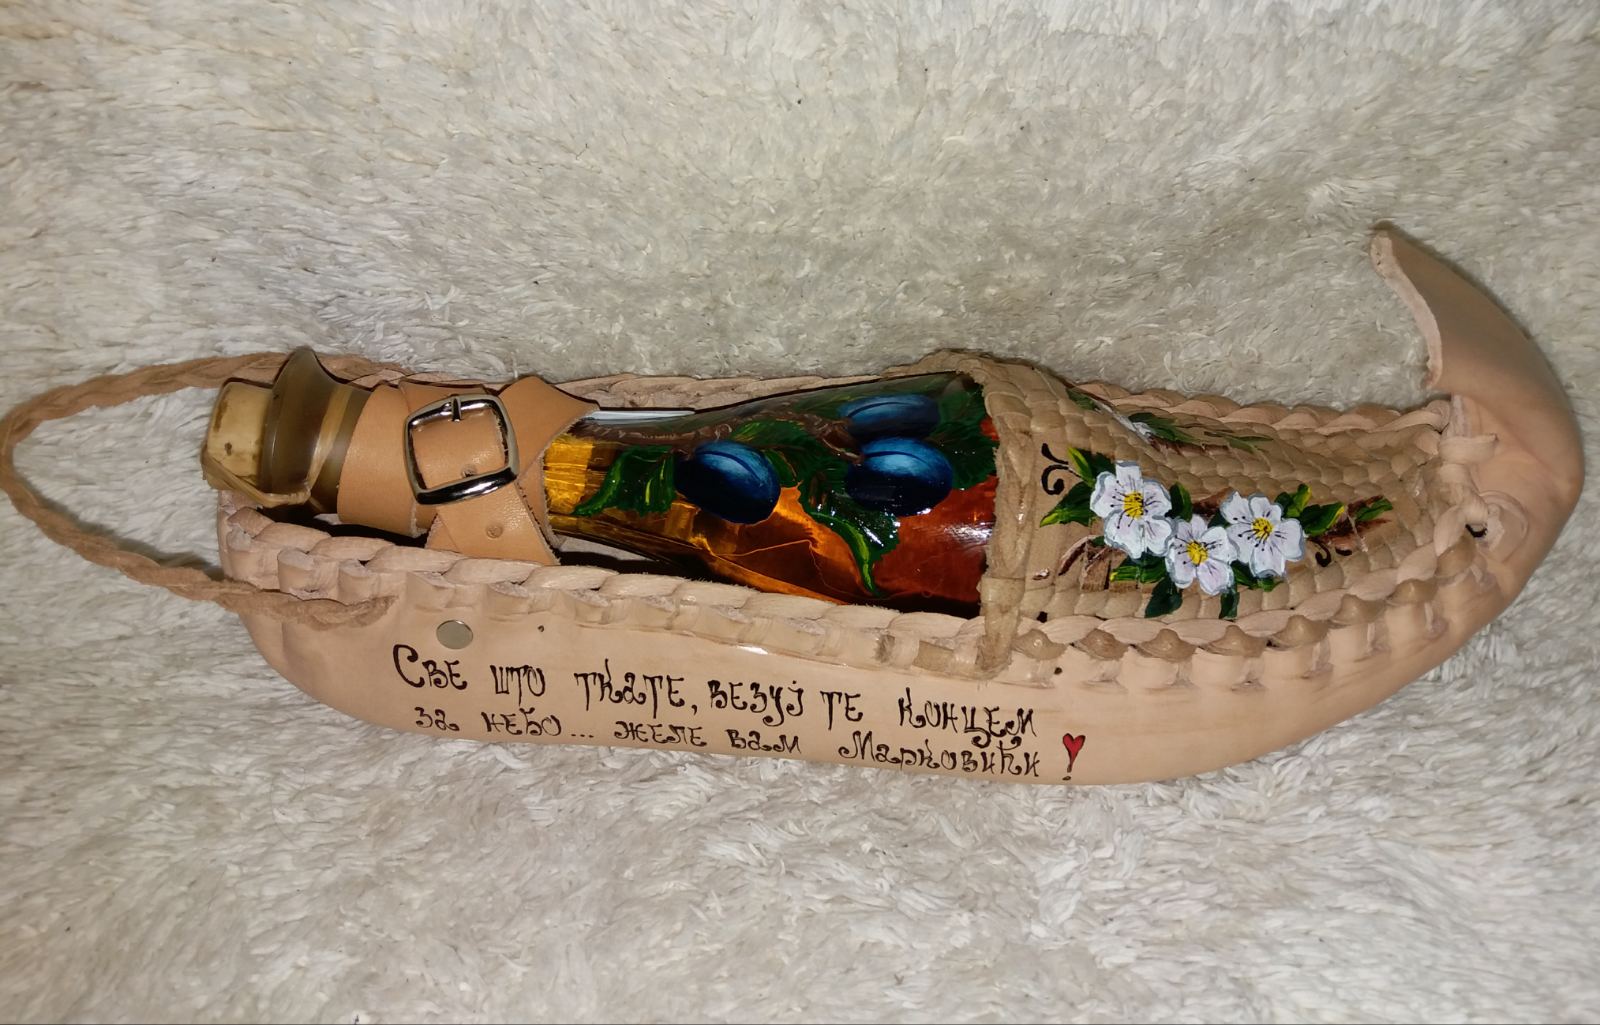 Све што ткате, везуј те концем
за небо... желе вам Марковићи!